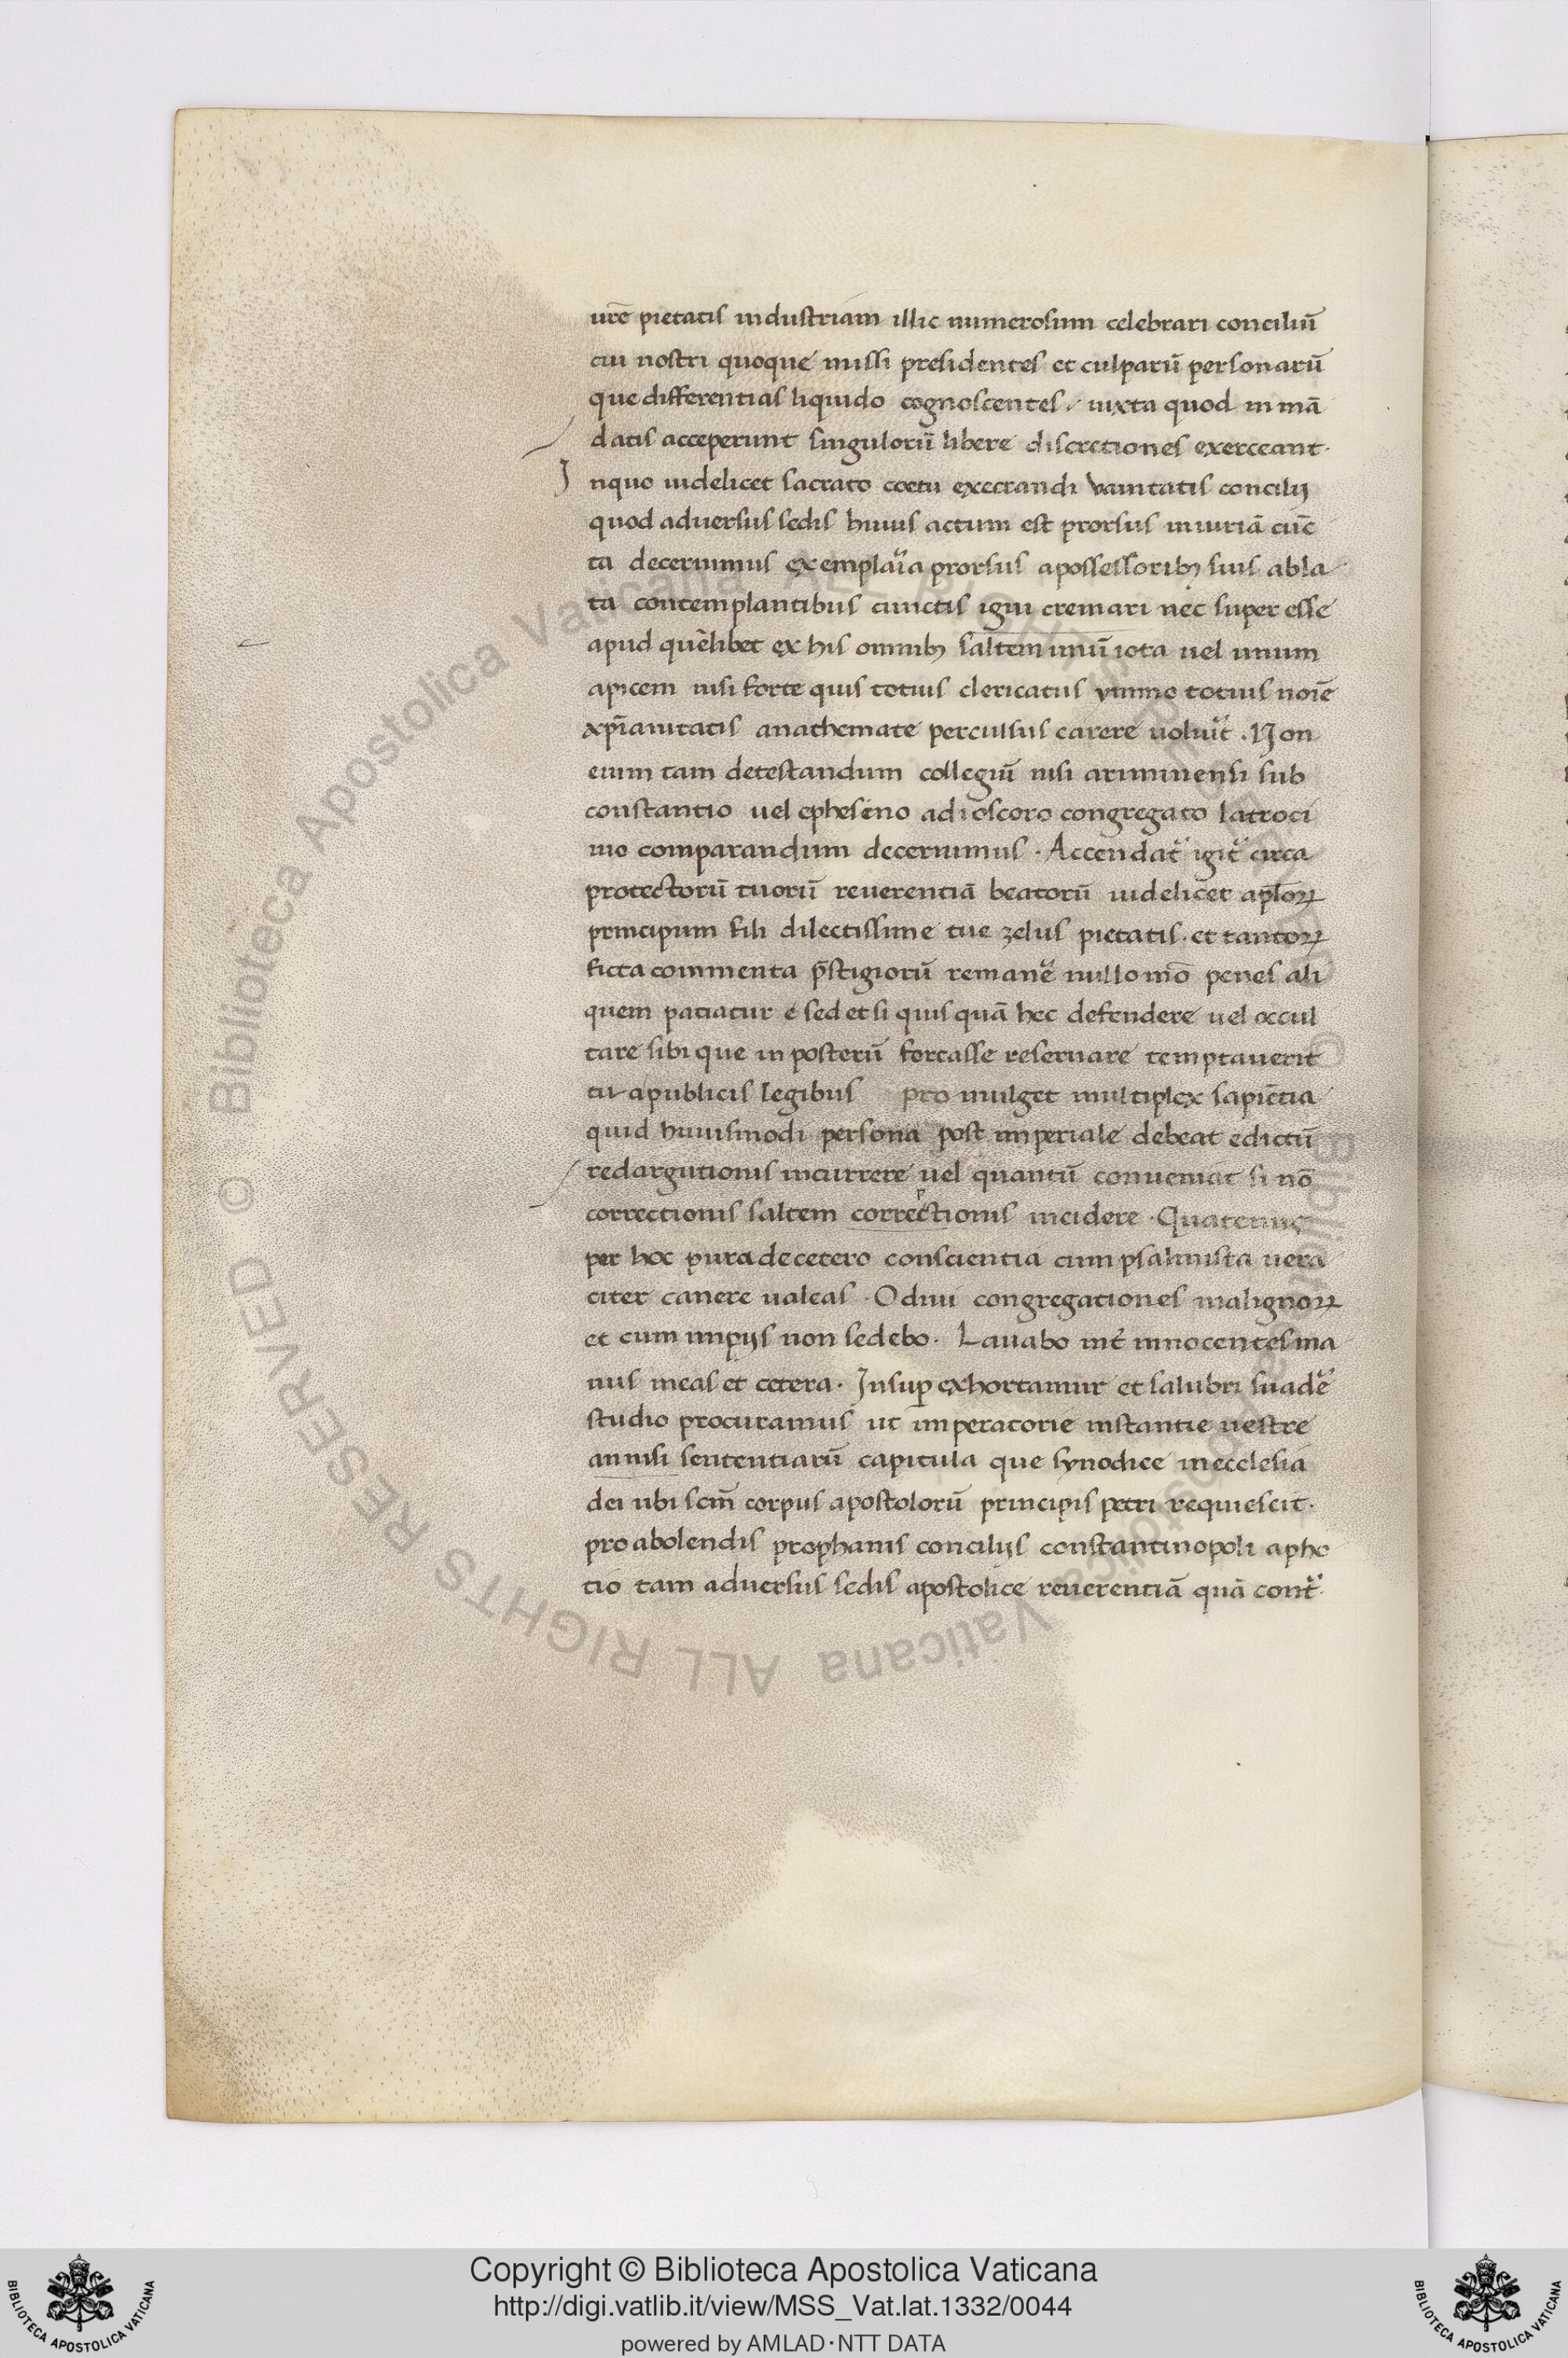 urē pietatis industriam illic numerosum celebrari conciliū
cui nostri quoque missi presidentes et culparū personarū
que differentias liquido cognoscentes, iuxta quod in mā
datis acceperunt singulorū libere discretiones exerceant.
J nquo uidelicet sacrato coetu execrandi vanitatis concilij
quod aduersus sedis huius actum est prorsus iniuriā cūc
ta decernimus exemplaria prorsus apossessoribꝫ suis abla
ta contemplantibus cunctis igni cremari nec super esse
apud quēlibet ex his omnibꝫ saltem unū iota uel unum
apicem nisi forte quis totius clericatus ymmo totius noīe
xp̄ianitatis anathemate percussus carere uoluit͛. Non
enim tam detestandum collegiū nisi ariminensi sub
constantio uel ephesino adioscoro congregato latroci
nio comparandum decernimus. Accendat͛ igit͛ circa
protectorū tuorū reuerentiā beatorū uidelicet ap̄loꝝ
principum fili dilectissime tue zelus pietatis. et tantoꝝ
ficta commenta p̄stigiorū remane͛ nullo mō penes ali
quem patiatur e sed et si quis quā hec defendere uel occul
tare sibi que in posterū fortasse reseruare temptauerit
tu apublicis legibus pro mulget multiplex sapiētia
quid huiusmodi persona post imperiale debeat edictū
redargutionis incurrere uel quantū conueniat si nō
correctionis saltem correctionis incidere. Quatenus
per hoc pura decetero conscientia cum psalmista uera
citer canere ualeas. Odiui congregationes malignoꝝ
et cum impijs non sedebo. Lauabo int͛ innocentes ma
nus meas et cetera. Jnsuꝑ exhortamur et salubri suade͛
studio procuramus ut imperatorie instantie uestre
annisi sententiarū capitula que synodice inecclesia
dei ubi scm̄ corpus apostolorū principis petri requiescit.
pro abolendis prophanis concilijs constantinopoli apho
tio tam aduersus sedis apostolice reuerentiā quā cont͛.
© Biblioteca Apostolica Vaticana ALL RIGHTS RESERVED
Copyright © Biblioteca Apostolica Vaticana
http://digi.vatlib.it/view/MSS_Vat.lat.1332/0044
powered by AMLAD·NTT DATA
BIBLIOTECA APOSTOLICA VATICANA
BIBLIOTECA APOSTOLICA VATICANA